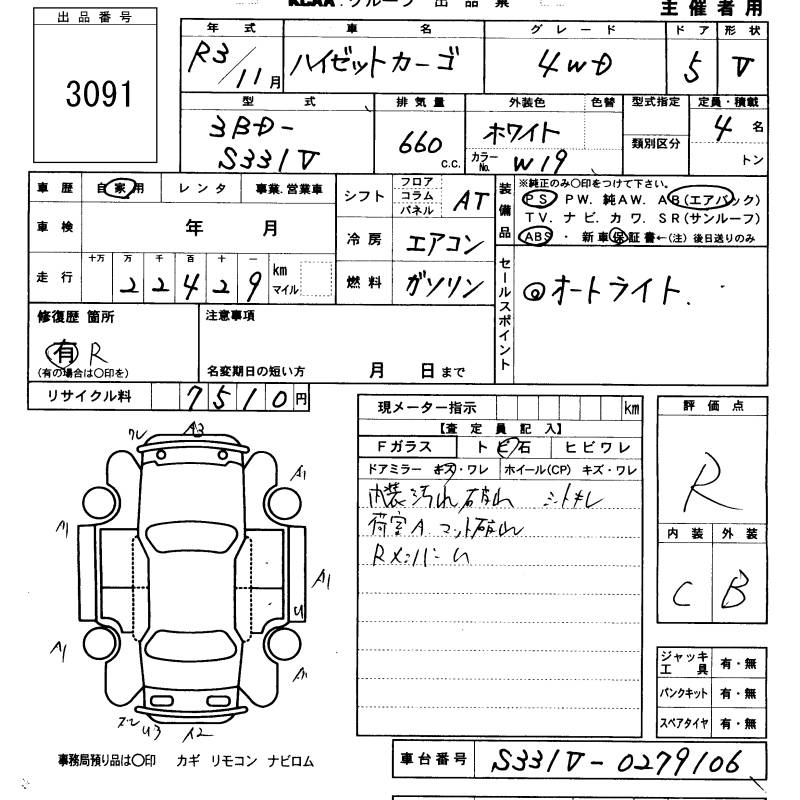 KCAA.グループ 出品票
主催者用
出品番号
3091
年式 車名 グレード ドア 形状
R3/11月 ハイゼットカーゴ 4WD 5 V
型式 排気量 外装色 色替 型式指定 定員・積載
3BD-
S331V
660 c.c.
ホワイト
カラーNo. W19
類別区分
4名
トン
車歴 自家用 レンタ 事業.営業車
車検 年 月
走行 十万 万 千 百 十 一
22429 km マイル
シフト フロア コラム パネル AT
冷房 エアコン
燃料 ガソリン
装備品
※純正のみ○印をつけて下さい。
PS PW. 純AW. AB(エアバック)
TV. ナビ. カワ. SR(サンルーフ)
ABS ・ 新車保証書←(注) 後日送りのみ
セールスポイント
◎オートライト.
修復歴 箇所
有 R
(有の場合は○印を)
注意事項
名変期日の短い方 月 日まで
リサイクル料 7510円
現メーター指示 km
【査定員記入】
Fガラス トビ石 ヒビワレ
ドアミラー キズ・ワレ ホイール(CP) キズ・ワレ
内装汚れ破れ シートキレ
荷室A マット破れ
RメンバーU
評価点
R
内装 外装
C B
ワレ A3
A1
A1
A1
U
A1
A1
ズレ U3 A2
ジャッキ工具 有・無
パンクキット 有・無
スペアタイヤ 有・無
事務局預り品は○印 カギ リモコン ナビロム
車台番号 S331V-0279106